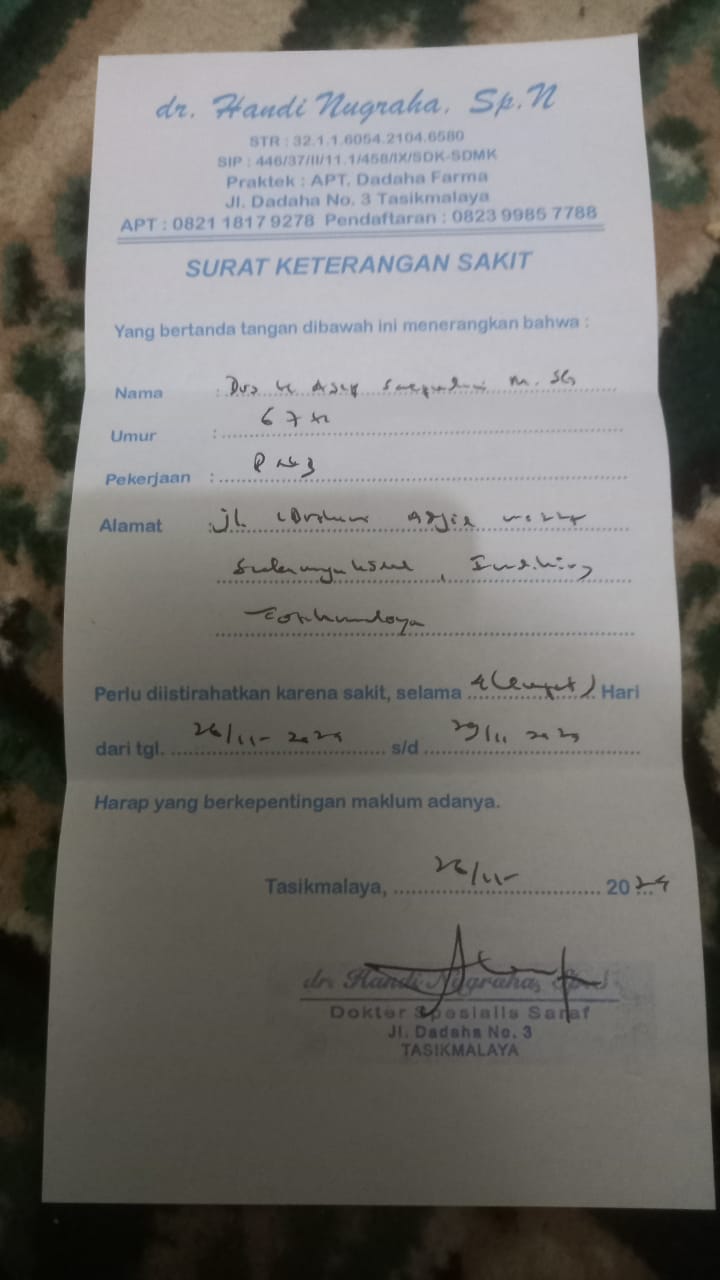 dr. Handi Nugraha, Sp.N
STR : 32.1.1.6054.2104.6580
SIP : 446/37/II/11.1/458/IX/SDK-SDMK
Praktek : APT. Dadaha Farma
Jl. Dadaha No. 3 Tasikmalaya
APT : 0821 1817 9278 Pendaftaran : 0823 9985 7788
SURAT KETERANGAN SAKIT
Yang bertanda tangan dibawah ini menerangkan bahwa :
Nama : Drs H Asep M. Sc
Umur : 67
Pekerjaan : PNS
Alamat : jl
Tasikmalaya
Perlu diistirahatkan karena sakit, selama 4 (empat) Hari
dari tgl. 26/11-2024 s/d 29/11 2024
Harap yang berkepentingan maklum adanya.
Tasikmalaya, 26/11- 2024
dr. Handi Nugraha, Sp.N
Dokter Spesialis Saraf
Jl. Dadaha No. 3
TASIKMALAYA